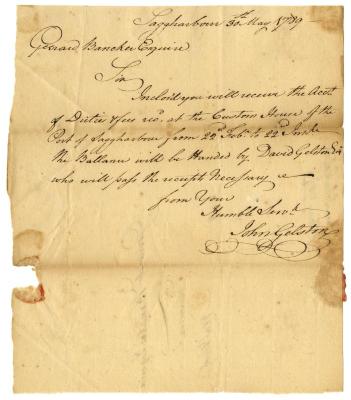 Saggharbour 30th May 1789
Gerard Bancker Esquire
Sir
Inclosd you will receive the Acot
of Duties & fees recd. at the Custom House of the
Port of Saggharbour from 22d Feby. to 22d Inst.
the Ballance will be Handed by David Gelston Esqr
who will pass the receipts Necessary
from Your
Humble Servt.
John Gelston